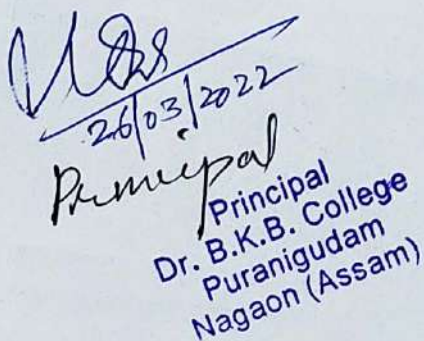 26/03/2022
Principal
Principal
Dr. B.K.B. College
Puranigudam
Nagaon (Assam)